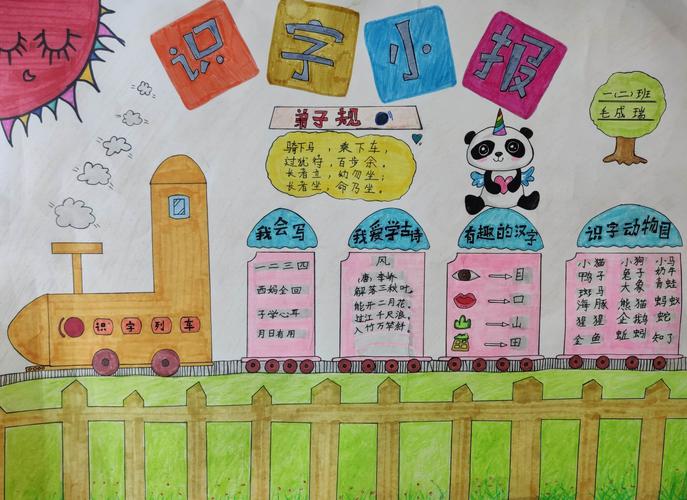 识字小报
弟子规
骑下马，乘下车，
过犹待，百步余。
长者立，幼勿坐；
长者坐，命乃坐。
一(二)班
毛成瑞
我会写
一二三四
西妈全回
子学心耳
月日有用
我爱学古诗
风
(唐)李峤
解落三秋叶，
能开二月花。
过江千尺浪，
入竹万竿斜。
有趣的汉字
目
口
山
田
识字动物园
小猫 小狗 小马
鸭子 兔子 奶牛
斑马 大象 青蛙
海豚 熊猫 蚂蚁
猩猩 企鹅 蛇
金鱼 蚯蚓 知了
识字列车